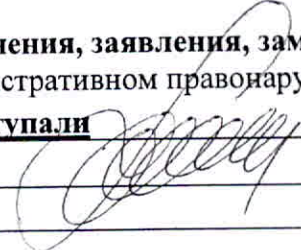 нения, заявления, зам
стративном правонару
тупали